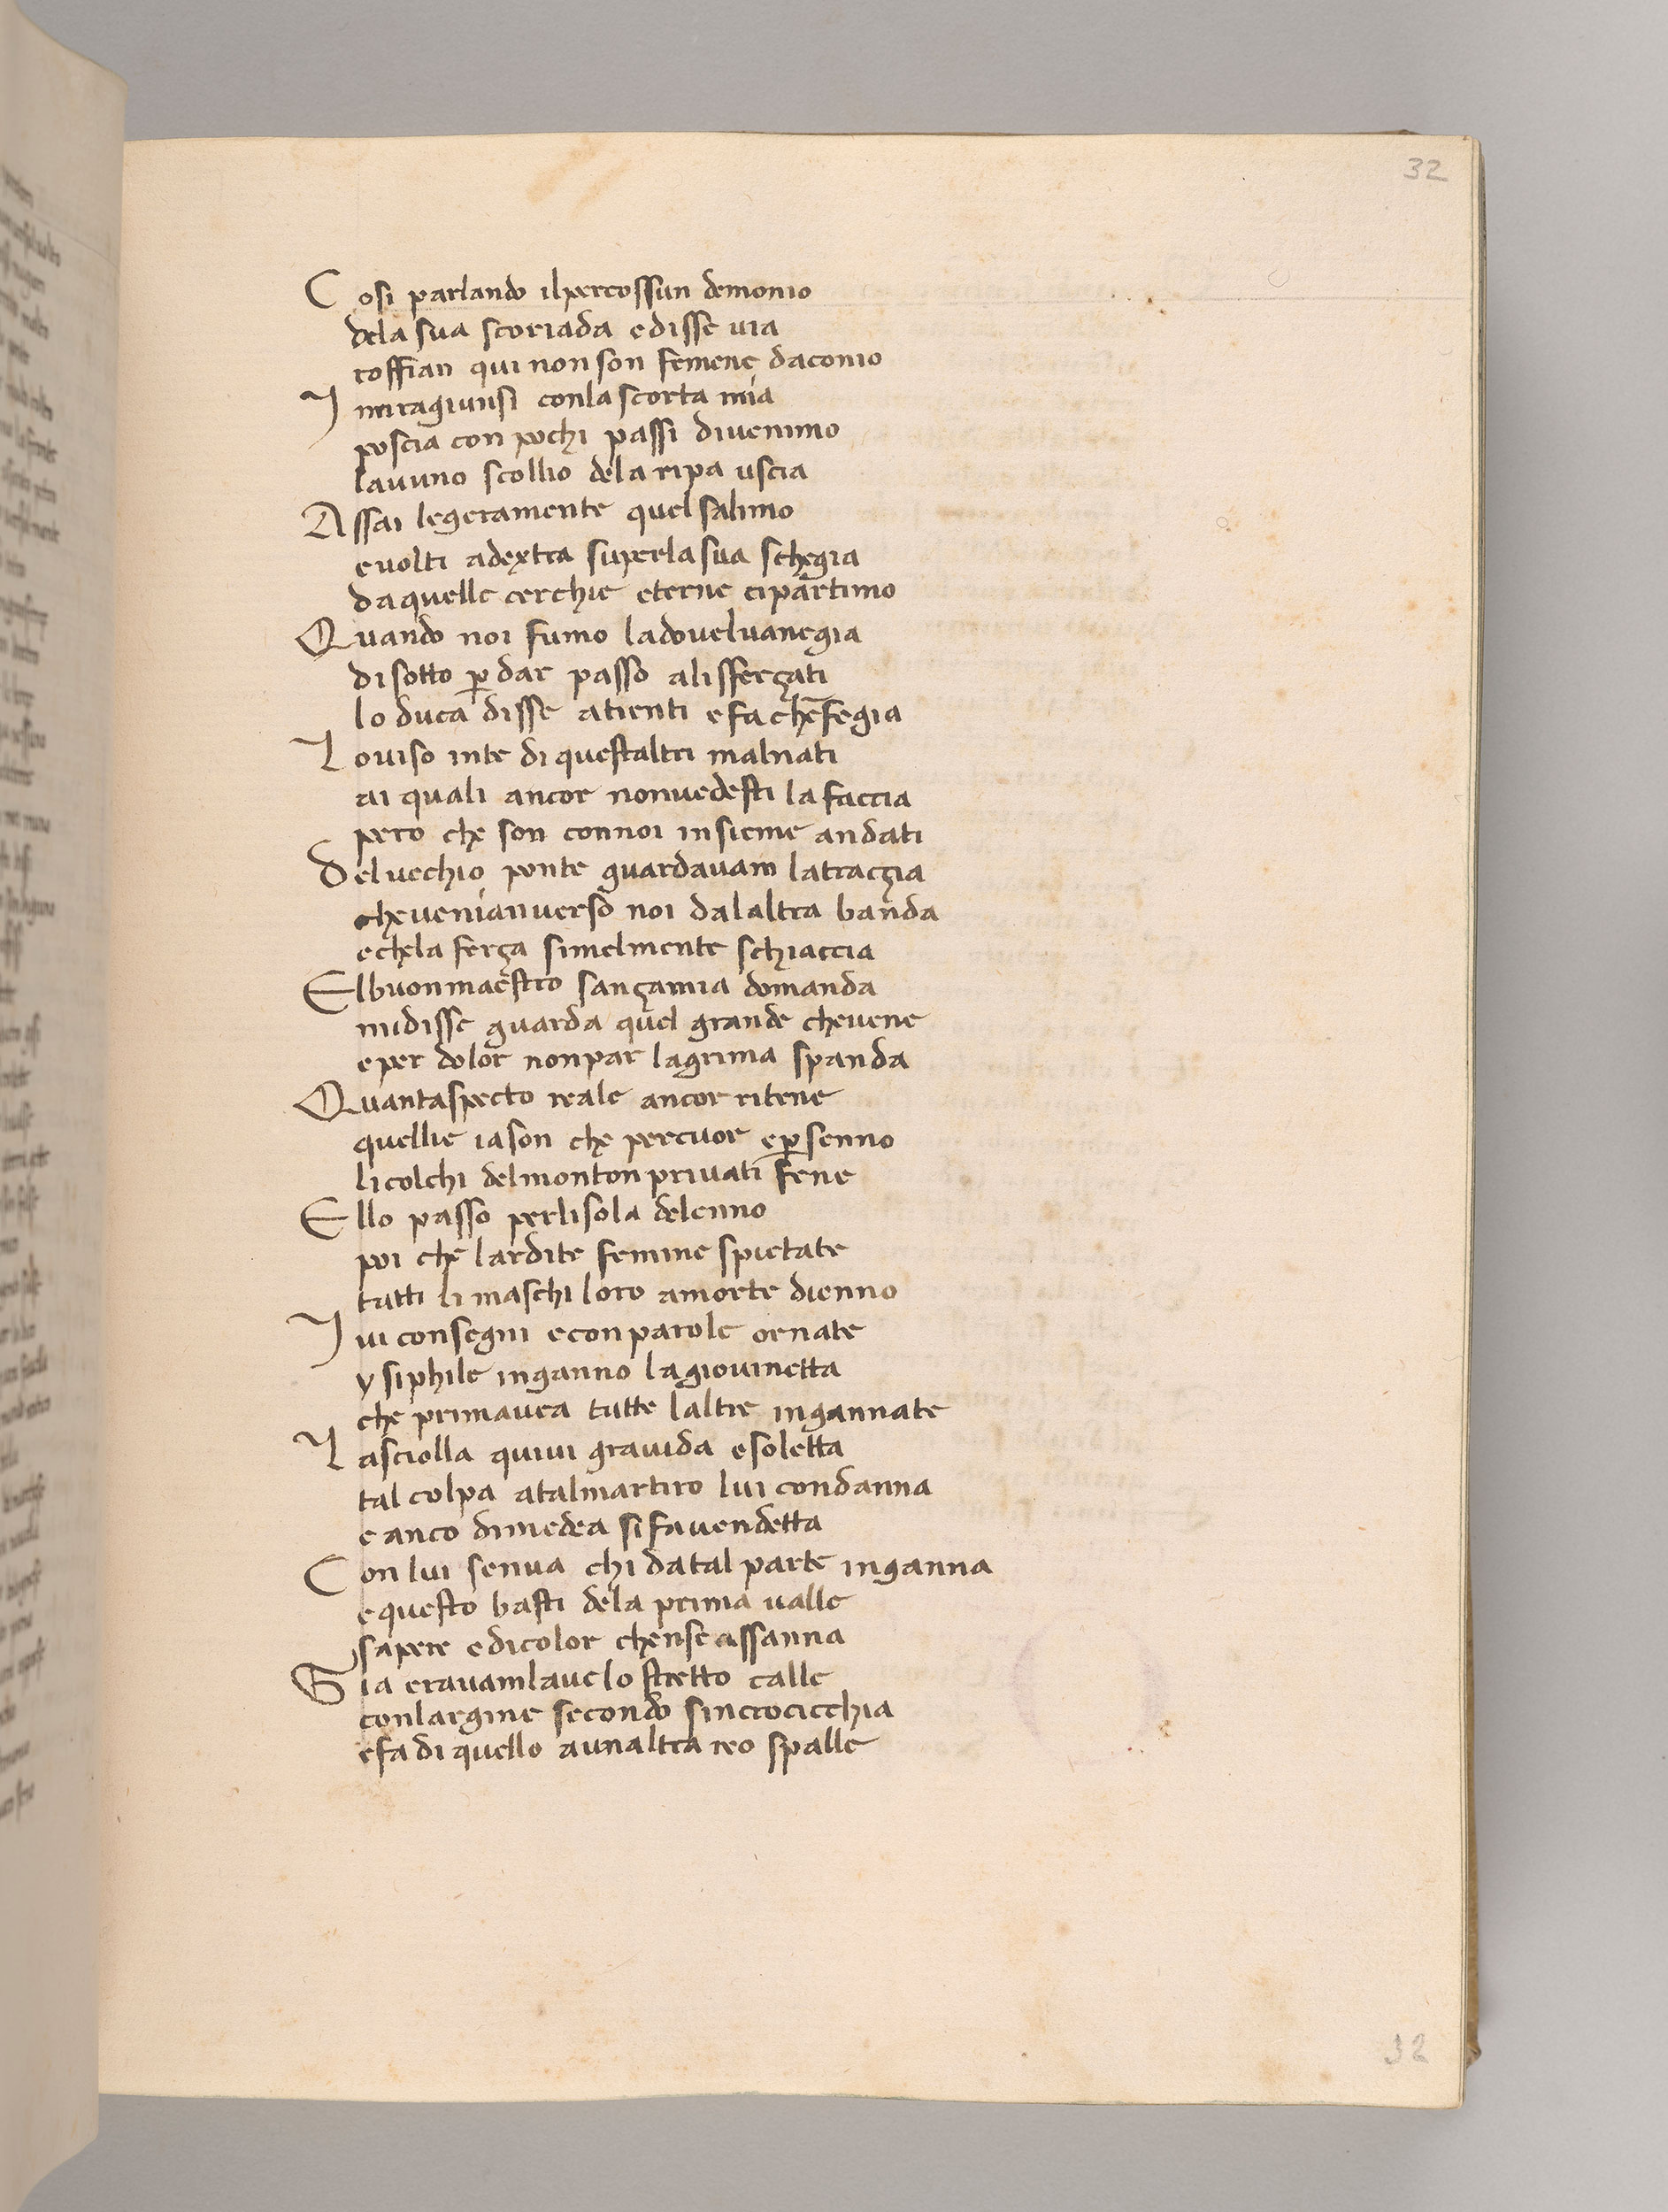 32
Cosi parlando ilpercossun demonio
dela sua scoriada edisse uia
roffian qui nonson femene daconio
I miragiunsi conla scorta mia
poscia con pochi passi diuenimo
lauuno scollio dela ripa uscia
Assai legeramente quel salimo
euolti adextra superla sua schegia
daquelle cerchie eterne cipartimo
Quando noi fumo ladouel uanegia
disotto ꝑ dar passo alisferçati
lo duca disse atienti efa chēfegia
Louiso inte di questaltri malnati
ai quali ancor nonuedesti la faccia
pero che son connoi insieme andati
Deluechio ponte guardauam latraccia
cheuenianuerso noi dalaltra banda
echela ferça simelmente schiaccia
Elbuonmaestro sançamia domanda
midisse guarda quel grande cheuene
eper dolor nonpar lagrima spanda
Quantaspecto reale ancor ritene
quellie iason che percuor eꝑsenno
licolchi delmonton priuati fene
Ello passo perlisola delenno
poi che lardite femine spietate
tutti li maschi loro amorte dienno
Iui consegni econparole ornate
ysiphile inganno lagiouinetta
che primauea tutte laltre ingannate
Lasciolla quiui grauida esoletta
tal colpa atalmartiro lui condanna
e anco dimedea si fauendetta
Con lui senua chi datal parte inganna
equesto basti dela prima ualle
sapere edicolor chense assanna
Gia erauamlauelo stretto calle
conlargine secondo sincrocicchia
efa di quello aunaltra reo spalle
32